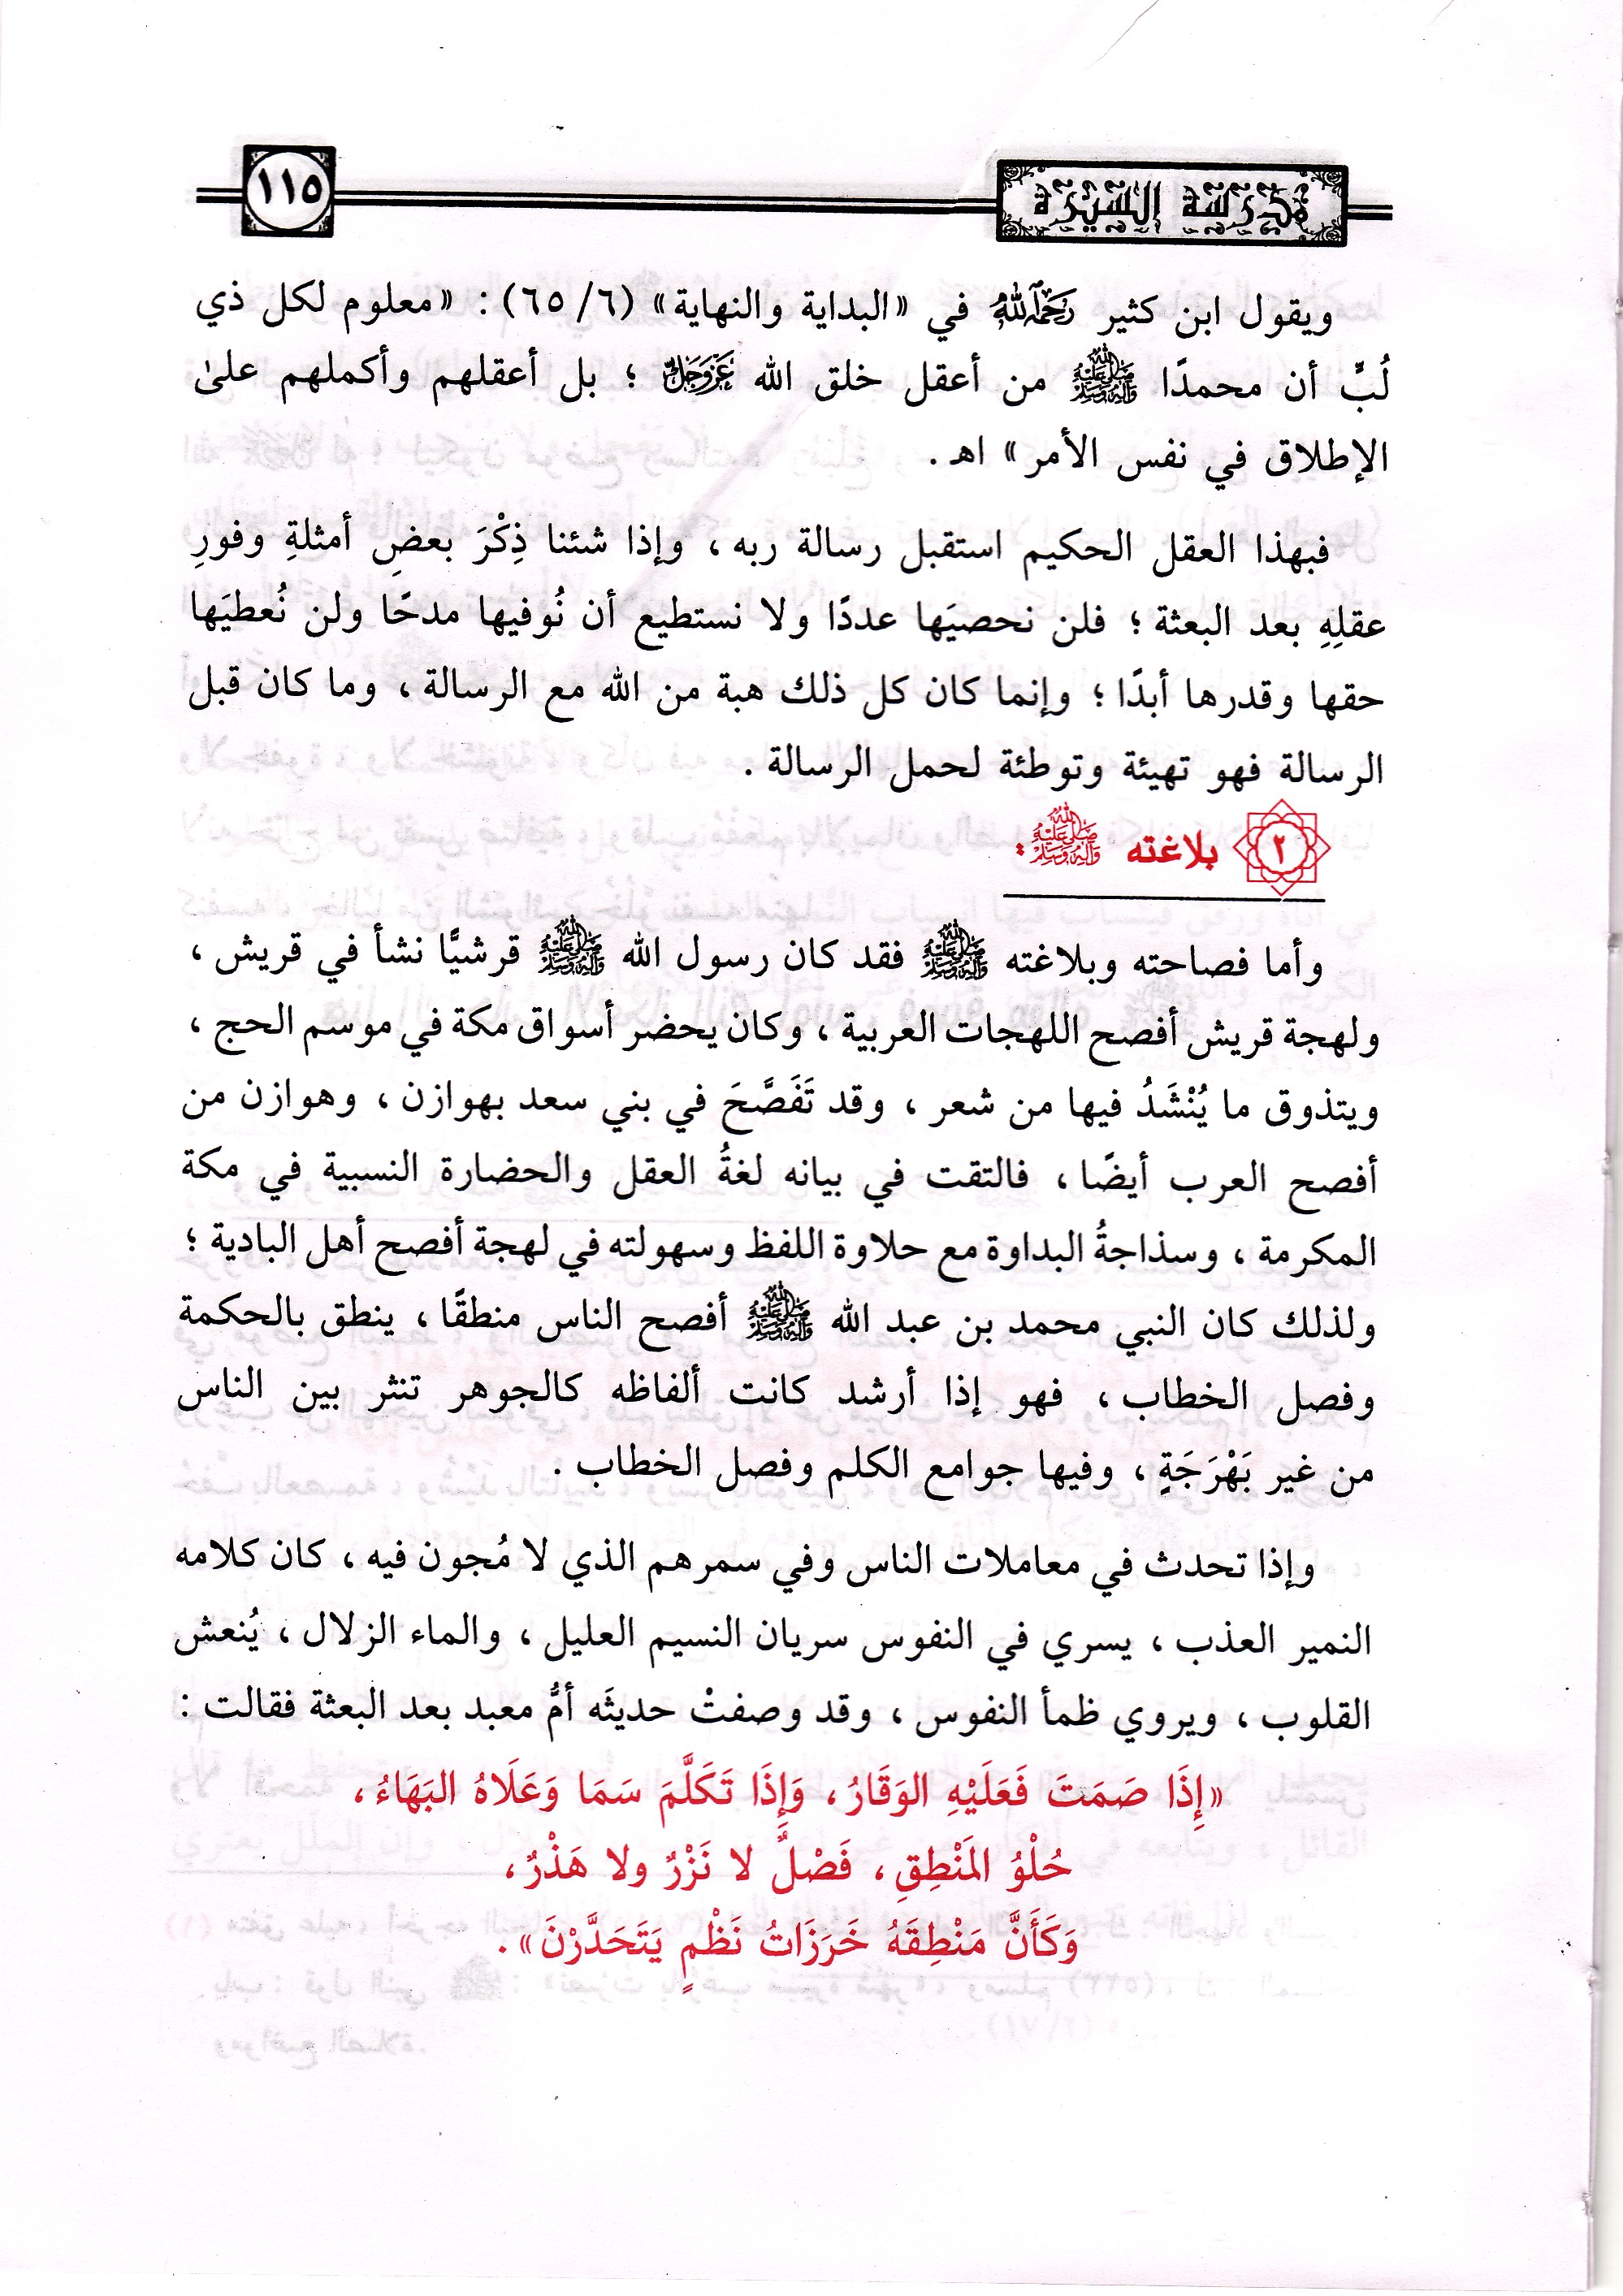 مدرسة السيرة
١١٥
ويقول ابن كثير رَحِمَهُ اللهُ في «البداية والنهاية» (٦/ ٦٥) : «معلوم لكل ذي
لُبٍّ أن محمدًا ﷺ من أعقل خلق الله عَزَّوَجَلَّ ؛ بل أعقلهم وأكملهم علىٰ
الإطلاق في نفس الأمر» اهـ .
فبهذا العقل الحكيم استقبل رسالة ربه ، وإذا شئنا ذِكْرَ بعضِ أمثلةِ وفورِ
عقلِهِ بعد البعثة ؛ فلن نحصيَها عددًا ولا نستطيع أن نُوفيها مدحًا ولن نُعطيَها
حقها وقدرها أبدًا ؛ وإنما كان كل ذلك هبة من الله مع الرسالة ، وما كان قبل
الرسالة فهو تهيئة وتوطئة لحمل الرسالة .
٢ بلاغته ﷺ :
وأما فصاحته وبلاغته ﷺ فقد كان رسول الله ﷺ قرشيًّا نشأ في قريش ،
ولهجة قريش أفصح اللهجات العربية ، وكان يحضر أسواق مكة في موسم الحج ،
ويتذوق ما يُنْشَدُ فيها من شعر ، وقد تَفَصَّحَ في بني سعد بهوازن ، وهوازن من
أفصح العرب أيضًا ، فالتقت في بيانه لغةُ العقل والحضارة النسبية في مكة
المكرمة ، وسذاجةُ البداوة مع حلاوة اللفظ وسهولته في لهجة أفصح أهل البادية ؛
ولذلك كان النبي محمد بن عبد الله ﷺ أفصح الناس منطقًا ، ينطق بالحكمة
وفصل الخطاب ، فهو إذا أرشد كانت ألفاظه كالجوهر تنثر بين الناس
من غير بَهْرَجَةٍ ، وفيها جوامع الكلم وفصل الخطاب .
وإذا تحدث في معاملات الناس وفي سمرهم الذي لا مُجون فيه ، كان كلامه
النمير العذب ، يسري في النفوس سريان النسيم العليل ، والماء الزلال ، يُنعش
القلوب ، ويروي ظمأ النفوس ، وقد وصفتْ حديثَه أمُّ معبد بعد البعثة فقالت :
«إِذَا صَمَتَ فَعَلَيْهِ الوَقَارُ، وَإِذَا تَكَلَّمَ سَمَا وَعَلَاهُ البَهَاءُ،
حُلْوُ المَنْطِقِ، فَصْلٌ لا نَزْرٌ ولا هَذْرٌ،
وَكَأَنَّ مَنْطِقَهُ خَرَزَاتُ نَظْمٍ يَتَحَدَّرْنَ».